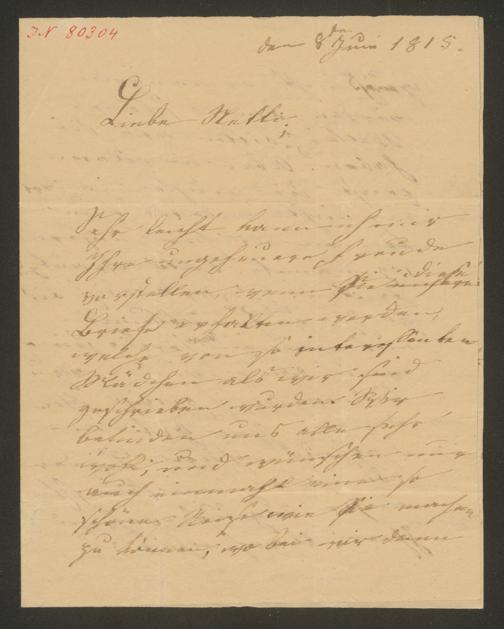 JN 80304
den 8ten Juni 1815.
Liebe Netti!
Sehr leicht kann ich mir
Ihre ungeheuere Freude
vorstellen, wenn Sie diese
Briefe erhalten werden,
welche von so interessanten
Mädchen als wir sind
geschrieben wurden. Wir
befinden uns alle sehr
wohl, und wünschen nur
auch einmahl eine so
schöne Reise wie Sie machen
zu können, wo bei wir dann